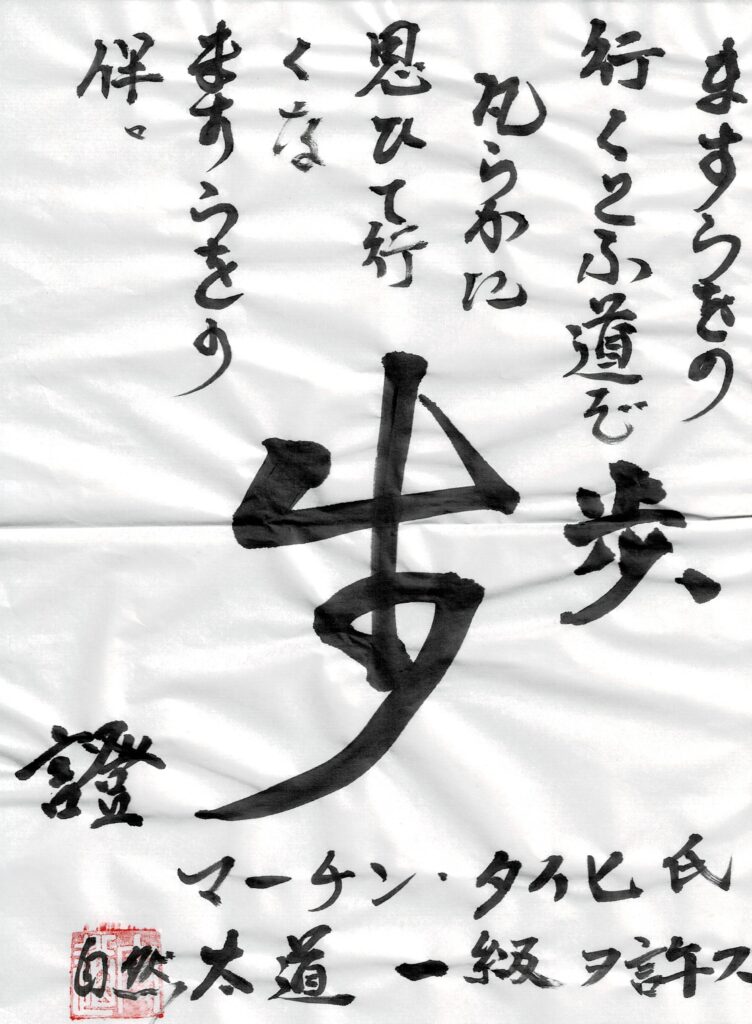 ますらをの
行くとふ道ぞ
凡らかに
思ひて行
くな
ますらをの
伴
歩
歩
證
マーチン・タイヒ氏
太道 一級ヲ許ス
自然